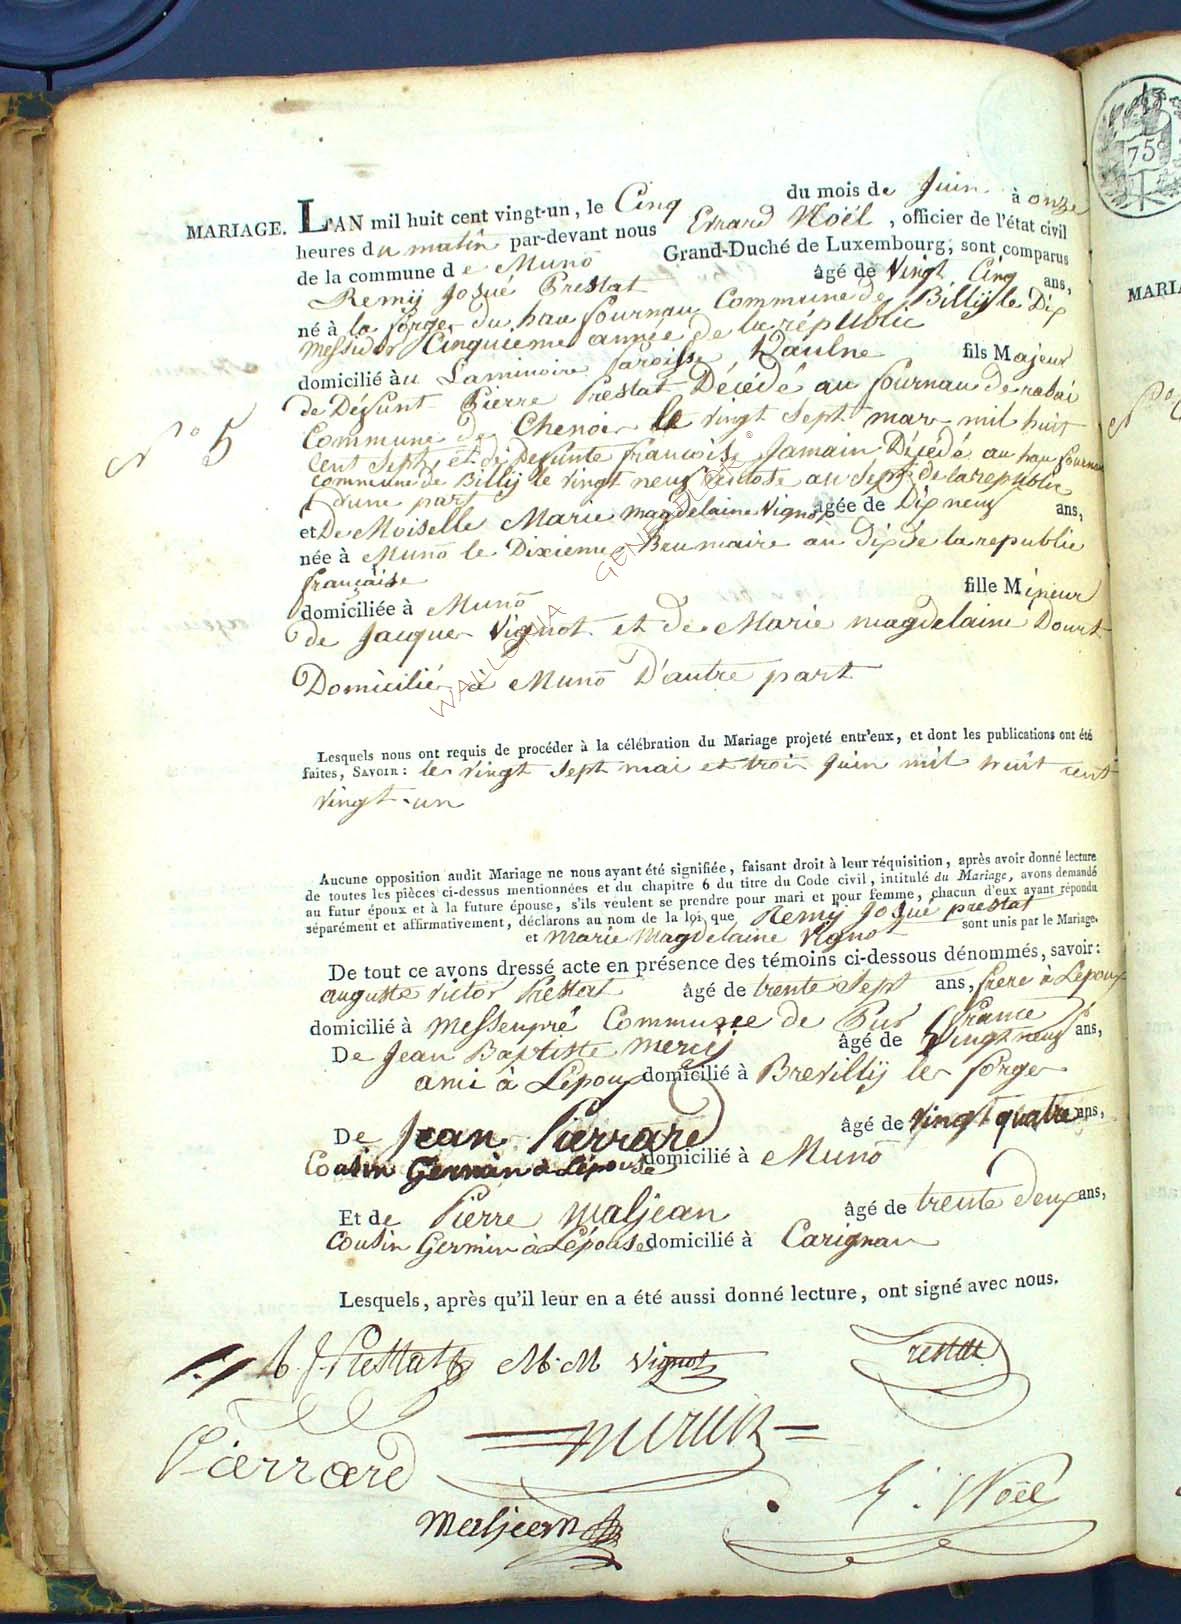 MARIAGE. L'AN mil huit cent vingt-un, le Cinq du mois de Juin à onze
heures du matin par-devant nous Evrard Noël, officier de l'état civil
de la commune de Muno Grand-Duché de Luxembourg, sont comparus
Remij Josué Prestat âgé de Vingt Cinq ans,
né à la forges du hau fournau Commune de Billij le Dix
Messidor Cinquieme année de la république
domicilié au Laminoire paroisse Daulne fils Majeur
de Défunt Pierre Prestat Décédé au fournau de
Commune de Chenois le vingt Sept mars mil huit
N° 5
cent Sept, et de Defunte françoise Jamain Décédé au hau fournau
commune de Billij le vingt neuf ventose an Sept de la republic
d'une part
et De Moiselle Marie Magdelaine Vignot âgée de Dix neuf ans,
née à Muno le Dixieme Brumaire an dix de la republic
française
domiciliée à Muno fille Mineur
de Jacques Vignot et de Marie magdelaine Dourt
Domicilié à Muno D'autre part
Lesquels nous ont requis de procéder à la célébration du Mariage projeté entr'eux, et dont les publications ont été
faites, SAVOIR : le vingt Sept mai et trois Juin mil huit cent
vingt-un
Aucune opposition audit Mariage ne nous ayant été signifiée, faisant droit à leur réquisition, après avoir donné lecture
de toutes les pièces ci-dessus mentionnées et du chapitre 6 du titre du Code civil, intitulé du Mariage, avons demandé
au futur époux et à la future épouse, s'ils veulent se prendre pour mari et pour femme, chacun d'eux ayant répondu
séparément et affirmativement, déclarons au nom de la loi que Remij Josué prestat
et Marie Magdelaine Vignot sont unis par le Mariage.
De tout ce avons dressé acte en présence des témoins ci-dessous dénommés, savoir :
auguste victor Prestat âgé de trente Sept ans, frere à Lépoux
domicilié à Messempré Commune de Pur france
De Jean Baptiste mercij âgé de Vingt neuf ans,
ami à Lépoux domicilié à Brevillij les forges
De Jean Pierrard âgé de vingt quatre ans,
Cousin Germin à Lépouse domicilié à Muno
Et de Pierre maljean âgé de trente deux ans,
Cousin Germin à Lépouse domicilié à Carignan
Lesquels, après qu'il leur en a été aussi donné lecture, ont signé avec nous.
R. J. Prestat M. M vignot Prestat
Pierrard
Maljean E. Noël
WALLONIA GENEALOGIE ©
75 c
MARIA